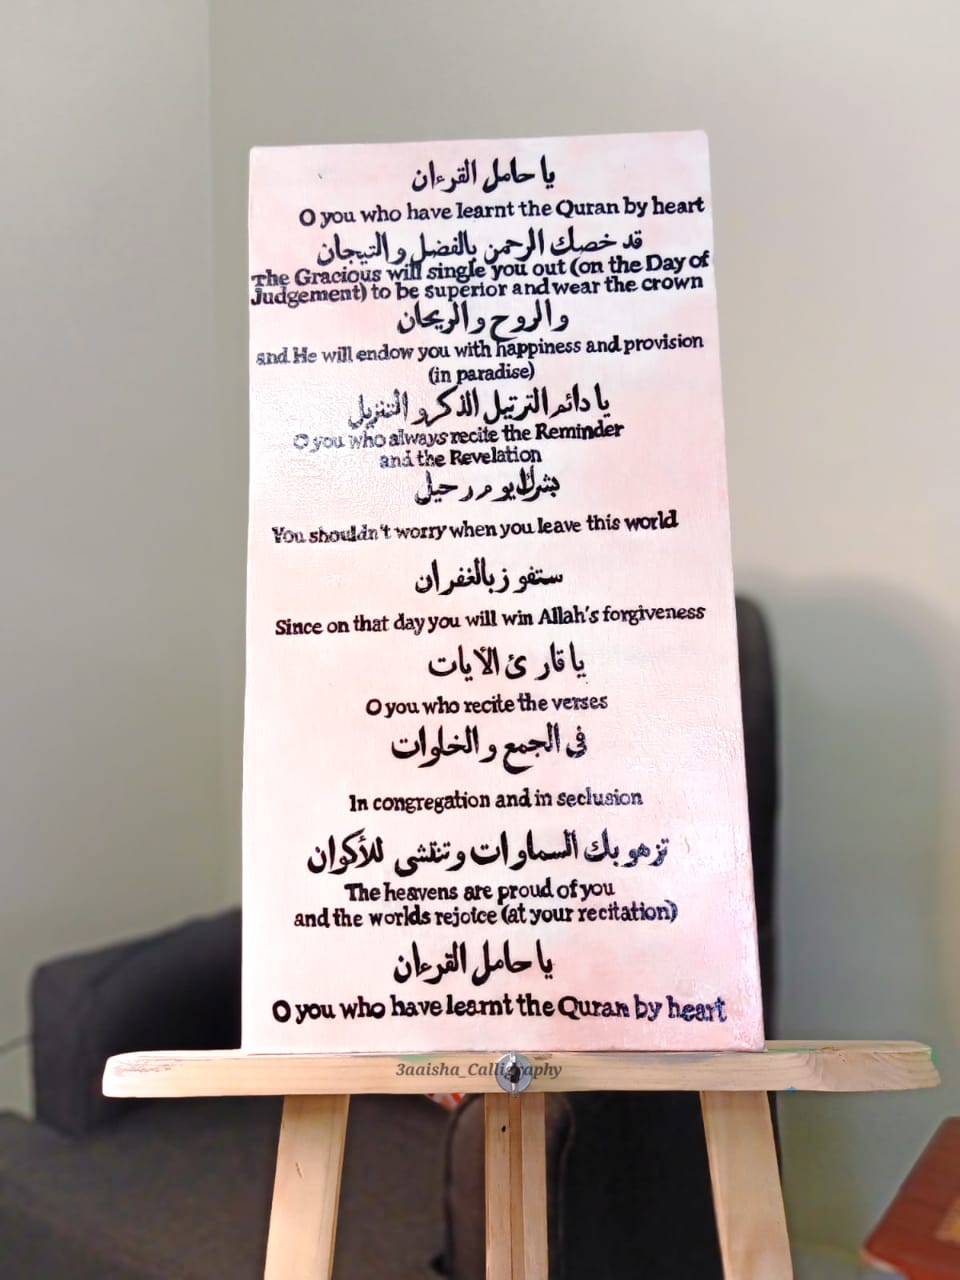 يا حامل القرءان
O you who have learnt the Quran by heart
قد خصك الرحمن بالفضل والتيجان
The Gracious will single you out (on the Day of
Judgement) to be superior and wear the crown
والروح والريحان
and He will endow you with happiness and provision
(in paradise)
يا دائم الترتيل الذكر و التنزيل
O you who always recite the Reminder
and the Revelation
بشراك يوم رحيل
You shouldn't worry when you leave this world
ستفوز بالغفران
Since on that day you will win Allah's forgiveness
يا قارئ الأيات
O you who recite the verses
في الجمع و الخلوات
In congregation and in seclusion
تزهو بك السماوات وتنتشي للأكوان
The heavens are proud of you
and the worlds rejoice (at your recitation)
يا حامل القرءان
O you who have learnt the Quran by heart
3aaisha_Calligraphy